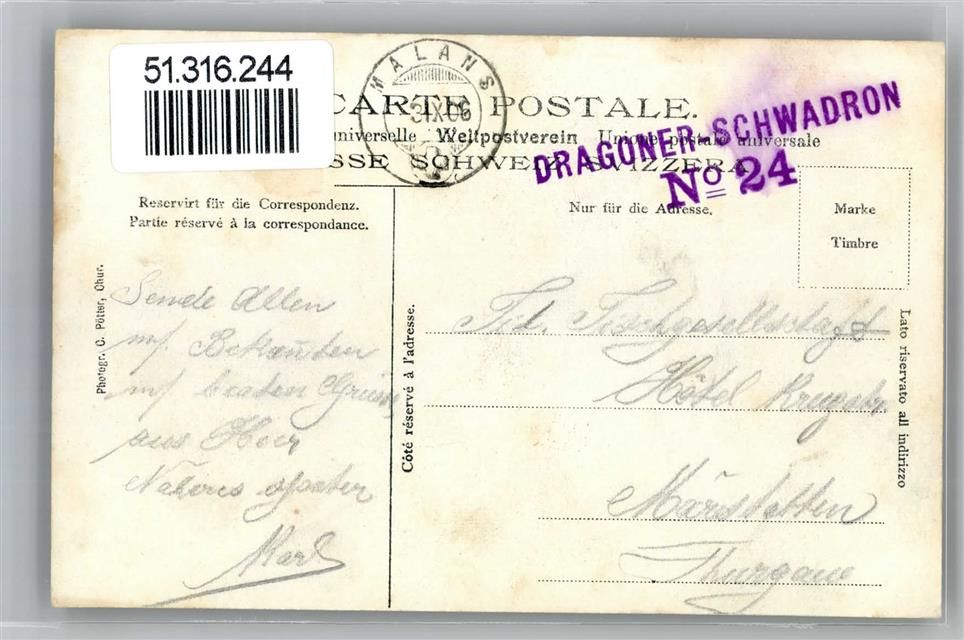 51.316.244
MALANS
3.IX.06
CARTE POSTALE.
universelle Weltpostverein Union postale universale
SSE SCHWEIZ SVIZZERA
DRAGONER-SCHWADRON
No 24
Reservirt für die Correspondenz.
Partie réservé à la correspondance.
Nur für die Adresse.
Marke
Timbre
Photogr. C. Pötter, Chur.
Côté réservé à l'adresse.
Lato riservato all indirizzo
Sende Allen
m/ Bekannten
m/ besten Grüsse
aus
Näheres später
Karl
Tit. Tischgesellschaft
Hôtel
Märstetten
Thurgau